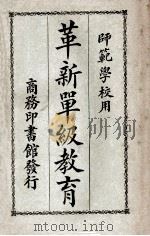 師範學校用
革新單級教育
商務印書館發行
www.mtoou.info